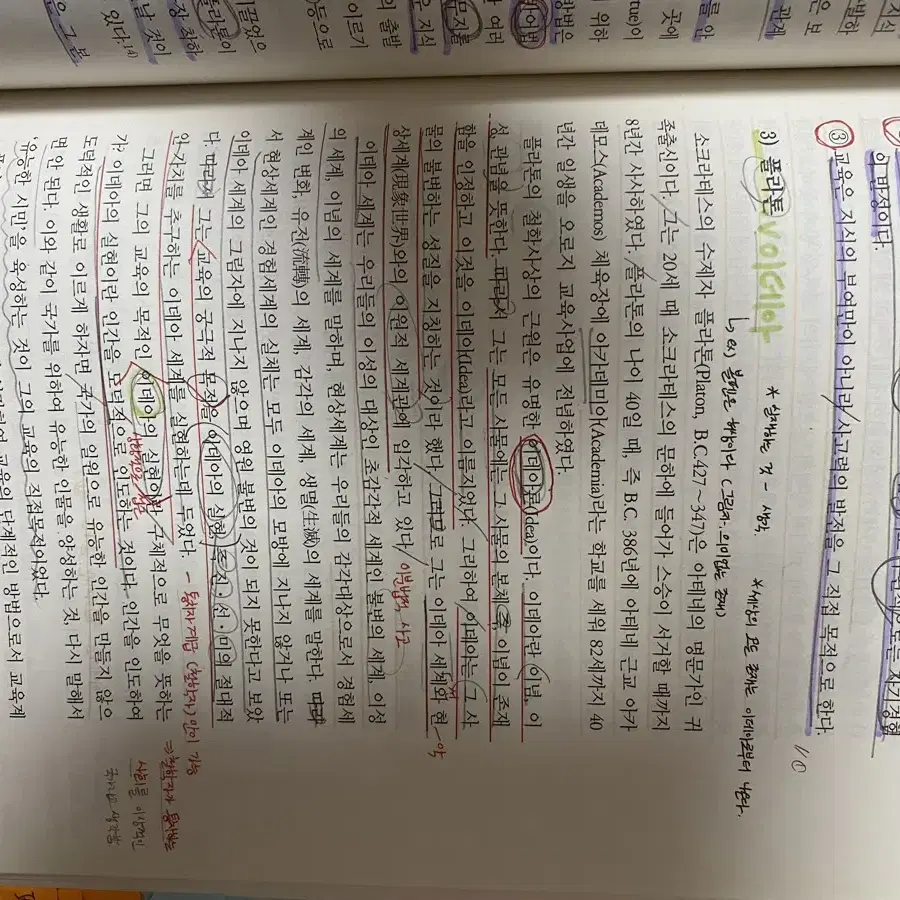 지식
발화
은 보
관계
를 안
곳에
위하
tue)이
방법은
여러
무지를
우 지식
의 출발
이르기
)등으로
난 것이
있다.14)
은 그 보
이 반성이다.
③ 교육은 지식의 부여만이 아니라/사고력의 발전을 그 직접 목적으로 한다.
3) 플라톤 V 이데아
* 실재하는 것 - 생각,
* 세상의 모든 존재는 이데아로부터 나온다.
소크라테스의 수제자 플라톤(Platon, B.C.427~347)은 아테네의 명문가인 귀
족출신이다. 그는 20세 때 소크라테스의 문하에 들어가 스승이 서거할 때까지
8년간 사사하였다. 플라톤의 나이 40일 때, 즉 B.C. 386년에 아테네 근교 아카
데모스(Academos) 체육장에 아카데미아(Academia)라는 학교를 세워 82세까지 40
년간 일생을 오로지 교육사업에 전념하였다.
플라톤의 철학사상의 근원은 유명한 이데아론(Idea)이다. 이데아란 이념, 이
성, 관념을 뜻한다. 따라서 그는 모든 사물에는 그 사물의 본체(즉 이념이 존재
함을 인정하고 이것을 이데아(Idea)라고 이름지었다. 그리하여, 이데아는 그 사
물의 불변하는 성질을 지칭하는 것이라 했다. 그러므로 그는 이데아 세계와 현
상세계(現象世界)와의 이원적 세계관에 입각하고 있다. 이분법적 사고
이데아 세계는 우리들의 이성의 대상인 초감각적 세계인 불변의 세계, 이성
의 세계, 이념의 세계를 말하며, 현상세계는 우리들의 감각대상으로서 경험세
계인 변화, 유전(流轉)의 세계, 감각의 세계, 생멸(生滅)의 세계를 말한다. 따라
서 현상세계인 경험세계의 실체는 모두 이데아의 모방에 지나지 않거나 또는
이데아 세계의 그림자에 지나지 않으며 영원 불변의 것이 되지 못한다고 보았
다. 따라서 그는 교육의 궁극적 목적을 이데아의 실현, 즉 지·선·미의 절대적
인 가치를 추구하는 이데아 세계를 실현하는데 두었다. - 통치자 계급 (철학자) 만이 가능
⇒ 철학자가 통치하는
사회를 이상적인
국가라고 생각함
그러면 그의 교육의 목적인 이데아의 실현이란 구체적으로 무엇을 뜻하는
가 이데아의 실험이란 인간을 도덕적으로 인도하는 것이다. 인간을 인도하여
도덕적인 생활로 이르게 하자면 국가의 일원으로 유능한 인간을 만들지 않으
면 안 된다. 이와 같이 국가를 위하여 유능한 인물을 양성하는 것, 다시 말해서
'유능한 시민'을 육성하는 것이 그의 교육의 직접목적이었다.
교육의 단계적인 방법으로서 교육계